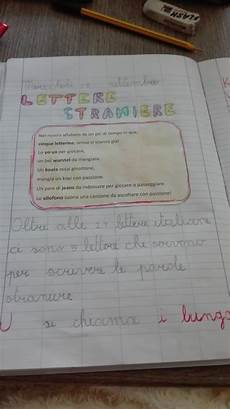 LETTERE
STRANIERE
Nel nostro alfabeto da un po' di tempo in qua,
cinque letterine, ormai si stanno già!
Lo yo-yo per giocare,
un bel wurstel da mangiare.
Un koala assai ghiottone,
mangia un kiwi con passione.
Un paio di jeans da indossare per giocare o passeggiare.
Lo xilofono suona una canzone da ascoltare con passione!
Oltre alle 21 lettere italiane
ci sono 5 lettere che servono
per scrivere le parole
straniere
si chiama i lunga